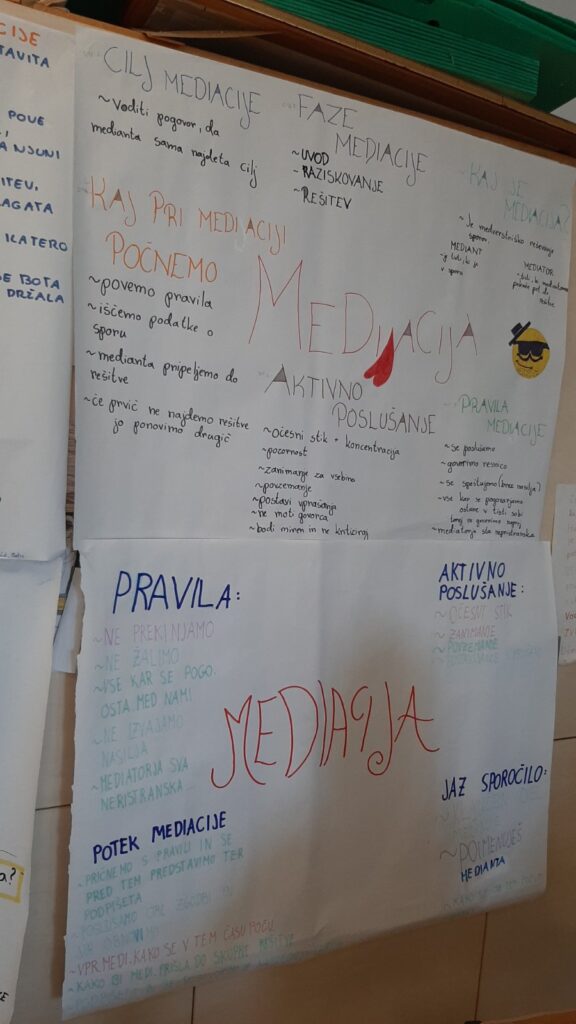 CIJE
TAVITA
POVE
A NJUNI
ITEV,
AGATA
KATERO
SE BOTA
DRŽALA
CILJ MEDIACIJE
~Voditi pogovor, da
medianta sama najdeta cilj
FAZE
MEDIACIJE
~UVOD
-RAZISKOVANJE
~REŠITEV
KAJ JE
MEDIACIJA?
~Je medvrstniško reševanje
sporov
MEDIANT
v sporu
MEDIATOR
rešitve
KAJ PRI MEDIJACIJI
POČNEMO
~povemo pravila
~iščemo podatke o
sporu
~medianta pripeljemo do
rešitve
~če prvič ne najdemo rešitve
jo ponovimo drugič
MEDIJACIJA
AKTIVNO
POSLUŠANJE
~očesni stik + koncentracija
~pozornost
~zanimanje za vsebino
~povzemanje
~postavi vprašanja
~ne moti govorca
~bodi miren in ne kritiziraj
PRAVILA
MEDIACIJE
~se poslušamo
~govorimo resnico
~se spoštujemo (brez nasilja)
~vse kar se pogovarjamo
ostane v tisti sobi
~mediatorja sta nepristranska
PRAVILA:
~NE PREKINJAMO
~NE ŽALIMO
~VSE KAR SE POGO.
OSTA MED NAMI
~NE IZVAJAMO
NASILJA
~MEDIATORJA SVA
NERISTRANSKA
AKTIVNO
POSLUŠANJE:
~OČESNI STIK
~ZANIMANJE
~POVZEMANJE
MEDIACIJA
JAZ SPOROČILO:
~POIMENUJEŠ
MEDIANTA
POTEK MEDIACIJE
~PRIČNEMO S PRAVILI IN SE
PRED TEM PREDSTAVIMO TER
PODPIŠETA
~POSLUŠAMO OBE ZGODBI IN
JO OBNOVIMO
~VPR. MEDI. KAKO SE V TEM ČASU POČU.
~KAKO BI MEDI. PRIŠLA DO SKUPNE REŠITVE